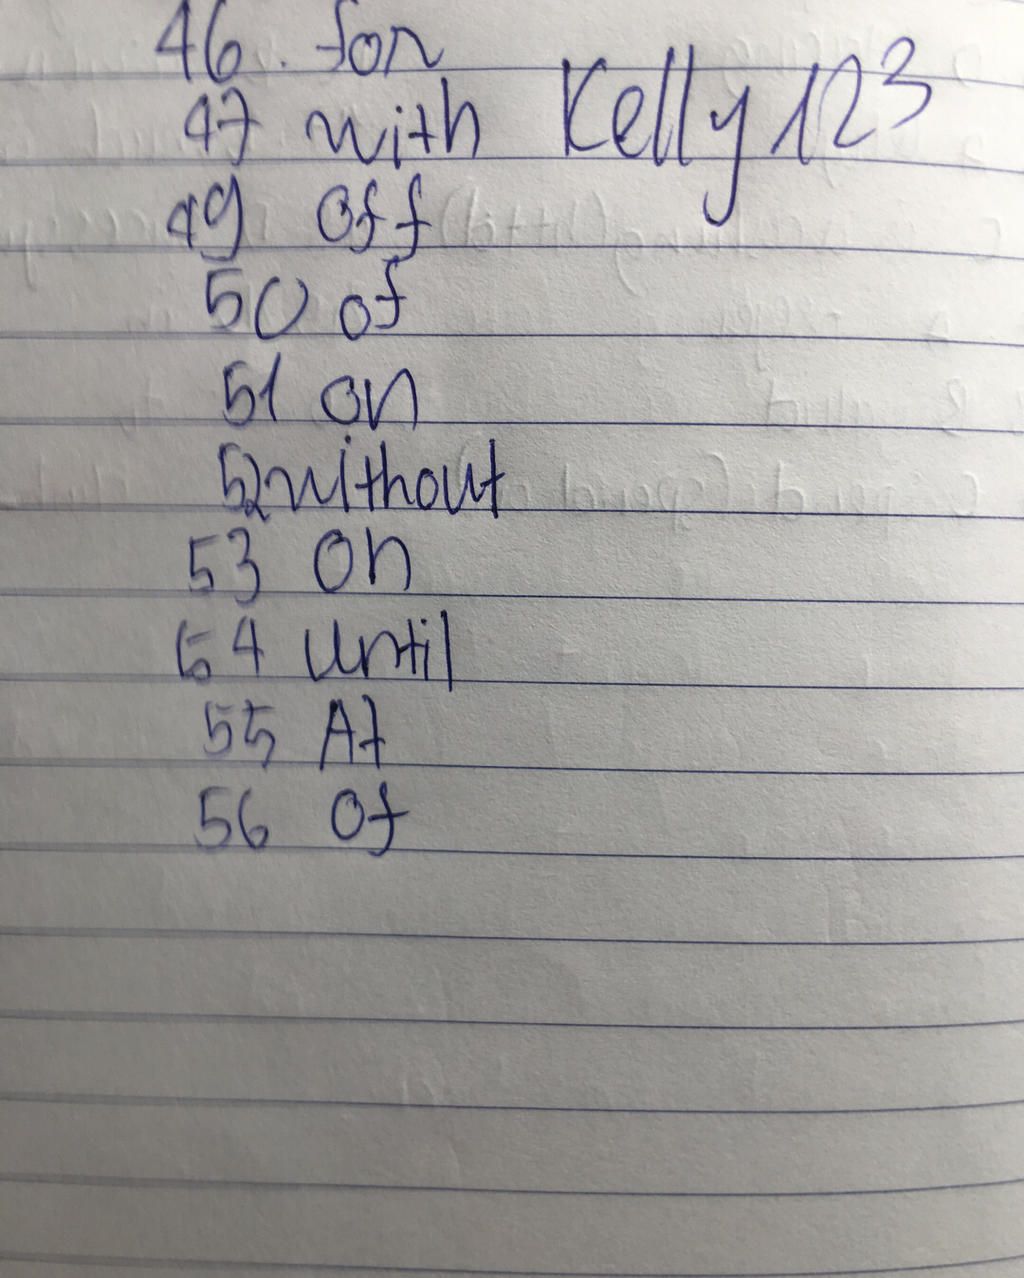 46. for
47 with Kelly123
49 off
50 of
51 on
52 without
53 on
54 until
55 At
56 of